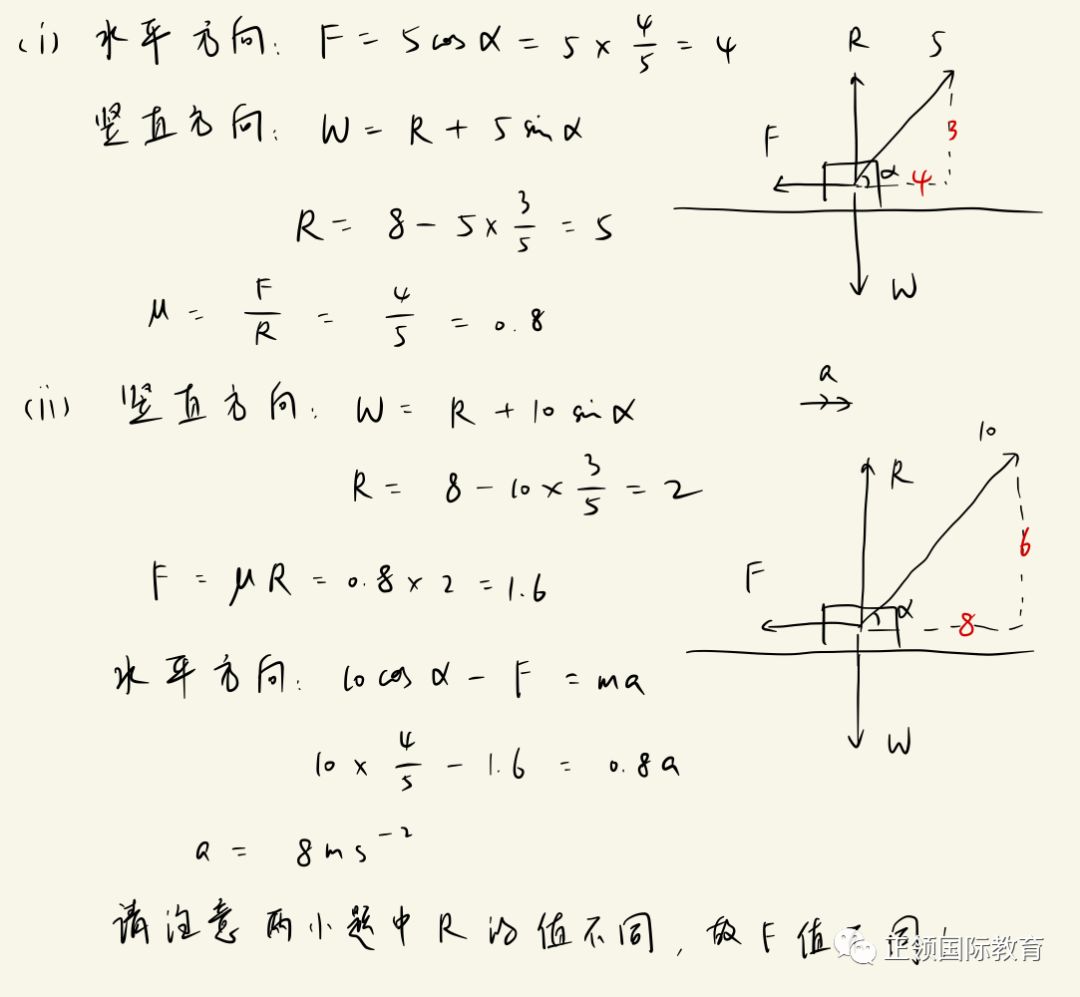 (i) 水平方向: F = 5 cos α = 5 × 4/5 = 4
竖直方向: W = R + 5 sin α
R = 8 - 5 × 3/5 = 5
μ = F/R = 4/5 = 0.8
R 5
F 3
α 4
W
(ii) 竖直方向: W = R + 10 sin α
R = 8 - 10 × 3/5 = 2
F = μR = 0.8 × 2 = 1.6
水平方向: 10 cos α - F = ma
10 × 4/5 - 1.6 = 0.8a
a = 8 ms⁻²
a
10
R
6
F
α 8
W
请注意两小题中 R 的值不同, 故 F 值不同!
正领国际教育